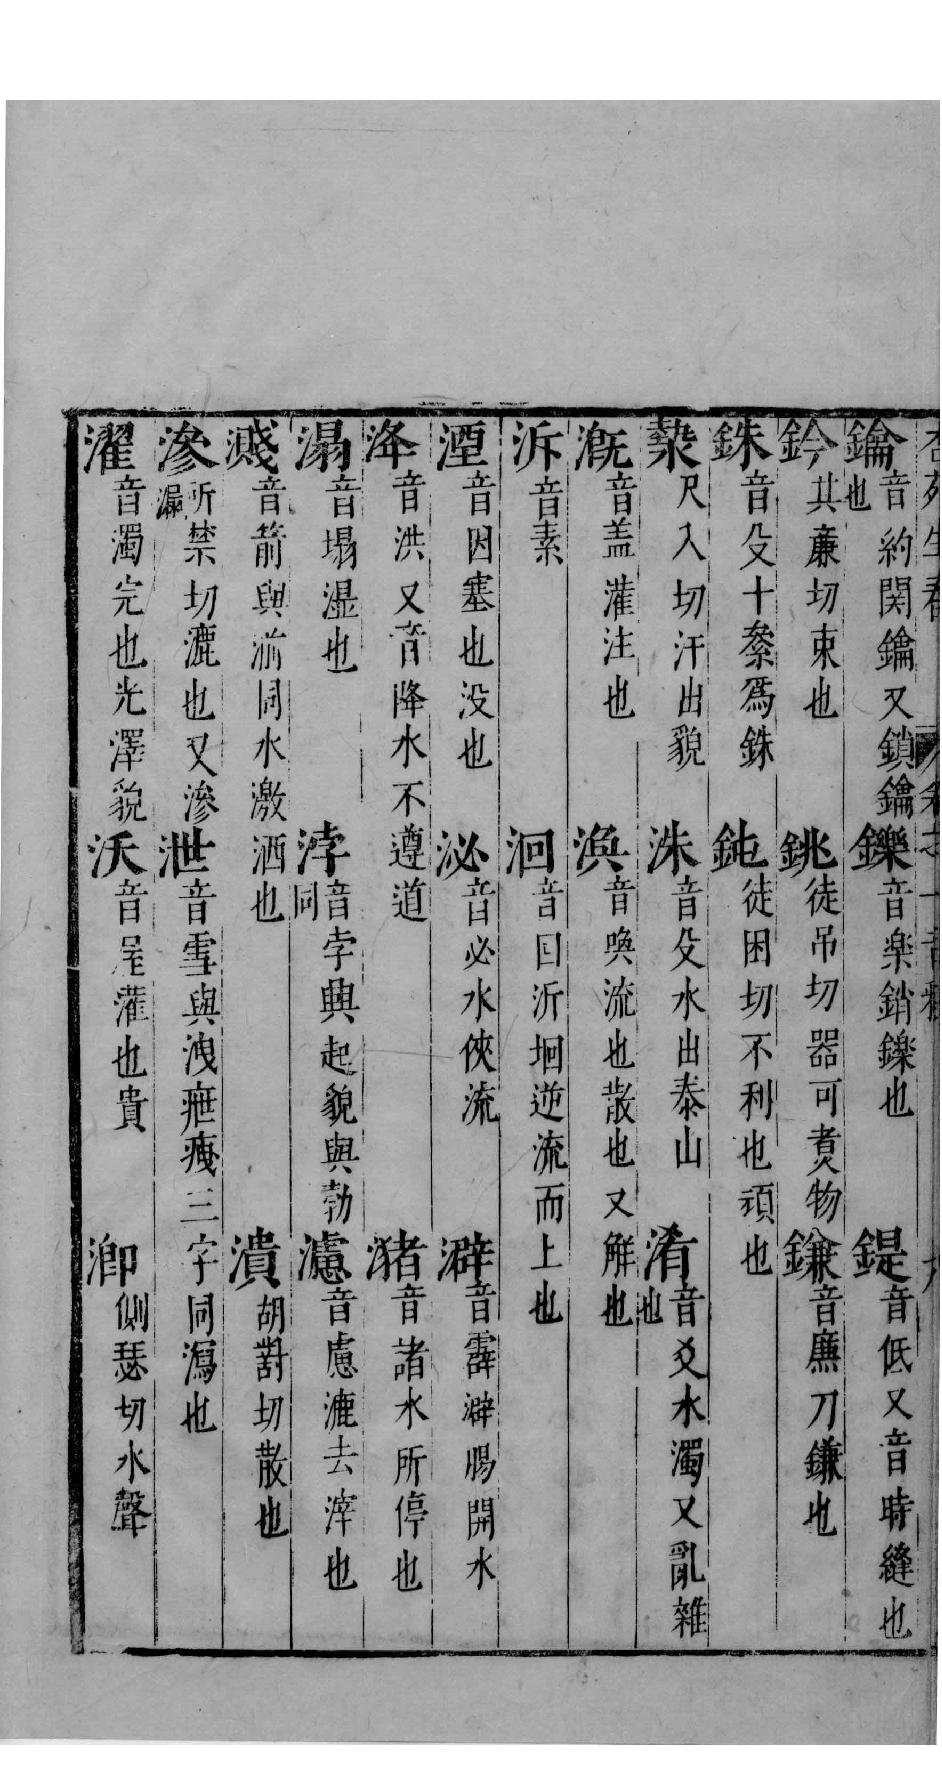 杏苑生春
鑰音約関鑰又鎖鑰也 鑠音楽銷鑠也 鍉音低又音時縫也
鈐其廉切束也 銚徒吊切器可煑物 鎌音廉刀鎌也
銖音殳十絫爲銖 鈍徒困切不利也頑也
漐尺入切汗出貌 洙音殳水出泰山 淆音爻水濁又亂雜也
漑音盖灌注也 渙音喚流也散也又解也
泝音素 洄音囘泝洄逆流而上也
湮音因塞也没也 泌音必水俠流 澼音霹澼腸開水
洚音洪又音降水不遵道 潴音諸水所停也
溻音塌湿也 浡音孛興起貌與勃同 濾音慮漉去滓也
濺音箭與湔同水激洒也 潰胡對切散也
滲所禁切漉也又滲漏 泄音雪與洩疶𤸱三字同瀉也
濯音濁完也光澤貌 沃音屋灌也貴 㴉側瑟切水聲